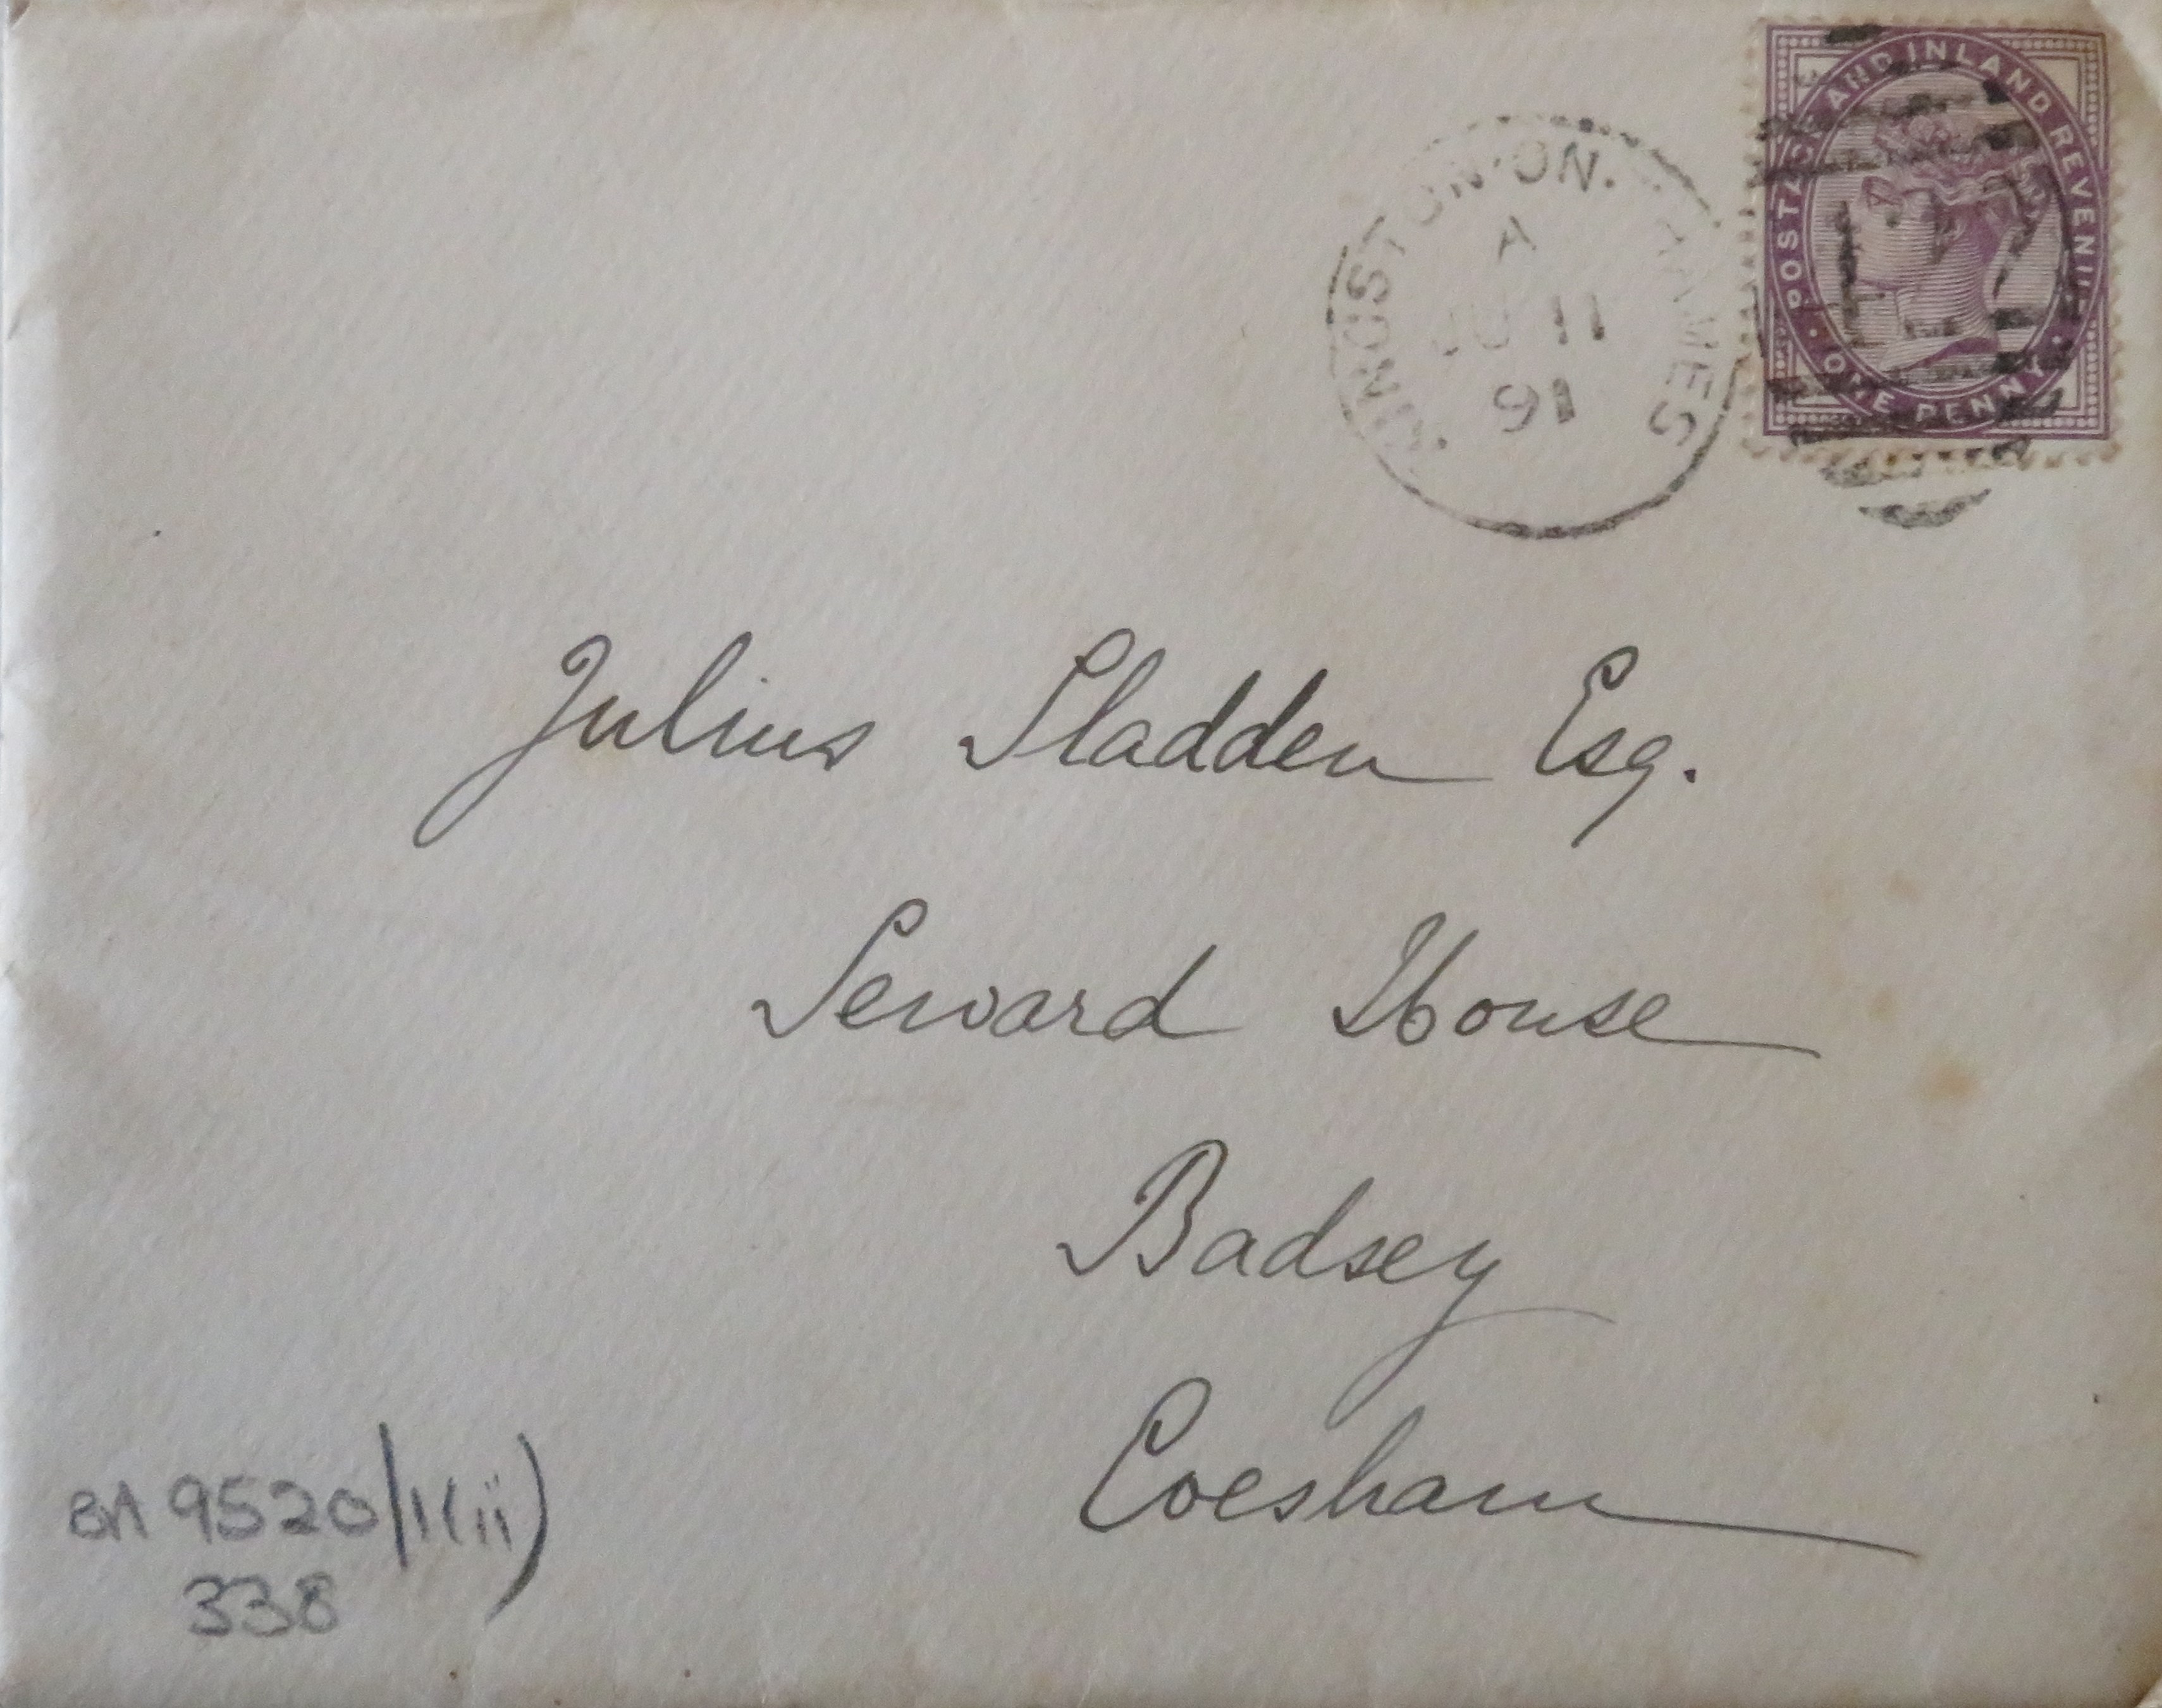 POSTAGE AND INLAND REVENUE
ONE PENNY
KINGSTON·ON·THAMES
A
JU 11
91
Julius Sladden Esq.
Seward House
Badsey
Evesham
BA 9520/1(ii)
338